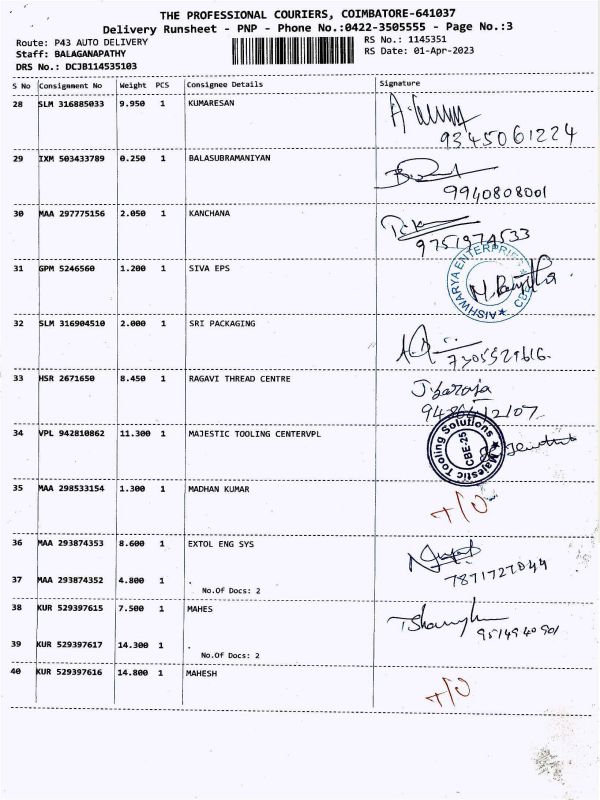 THE PROFESSIONAL COURIERS, COIMBATORE-641037
Delivery Runsheet - PNP - Phone No.:0422-3505555 - Page No.:3
Route: P43 AUTO DELIVERY
RS No.: 1145351
Staff: BALAGANAPATHY
RS Date: 01-Apr-2023
DRS No.: DCJB114535103
S No Consignment No Weight PCS Consignee Details Signature
28 SLM 316885033 9.950 1 KUMARESAN
9345061224
29 IXM 503433789 0.250 1 BALASUBRAMANIYAN
9940808001
30 MAA 297775156 2.050 1 KANCHANA
9751974533
31 GPM 5246560 1.200 1 SIVA EPS
AISHWARYA ENTERPRISES CBE
32 SLM 316904510 2.000 1 SRI PACKAGING
7305529616.
33 HSR 2671650 8.450 1 RAGAVI THREAD CENTRE
34 VPL 942810862 11.300 1 MAJESTIC TOOLING CENTERVPL
Majestic Tooling Solutions CBE-25
35 MAA 298533154 1.300 1 MADHAN KUMAR
T/O
36 MAA 293874353 8.600 1 EXTOL ENG SYS
37 MAA 293874352 4.800 1 .
7871727044
No.Of Docs: 2
38 KUR 529397615 7.500 1 MAHES
9514940901
39 KUR 529397617 14.300 1 .
No.Of Docs: 2
40 KUR 529397616 14.800 1 MAHESH
T/O